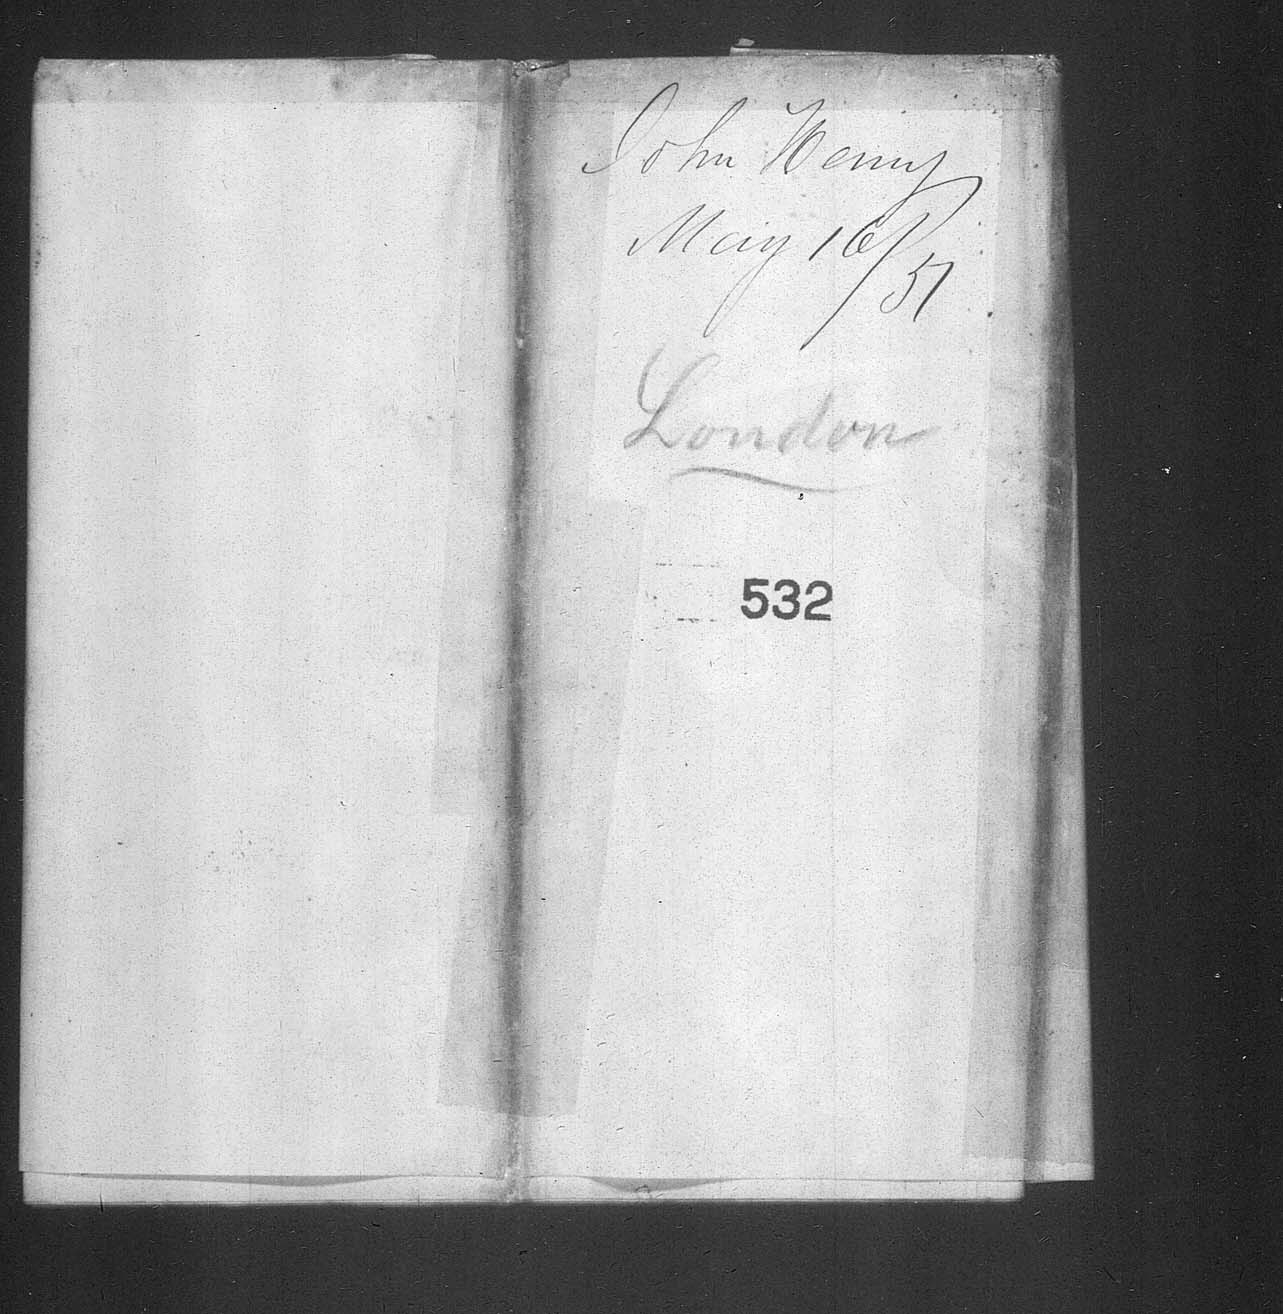 John Henry
May 16/57
London
532